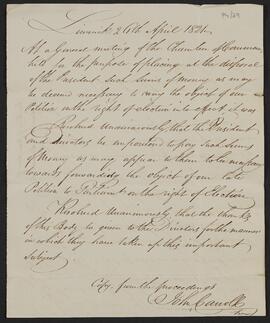 Limerick 26th April 1821
At a General meeting of the Chamber of Commerce
held for the purpose of placing at the disposal
of the President such Sums of money as may
be deemed necessary to carry the object of our
Petition on the right of election into effect it was
Resolved Unanimously that the President
and directors be empowered to pay such Sums
of Money as may appear to them to be necessary
towards forwarding the object of our late
Petition to Parliament on the right of Election
Resolved Unanimously that the thanks
of this Body be given to the Directors for the manner
in which they have taken up this important
Subject
Copy from the proceedings
John